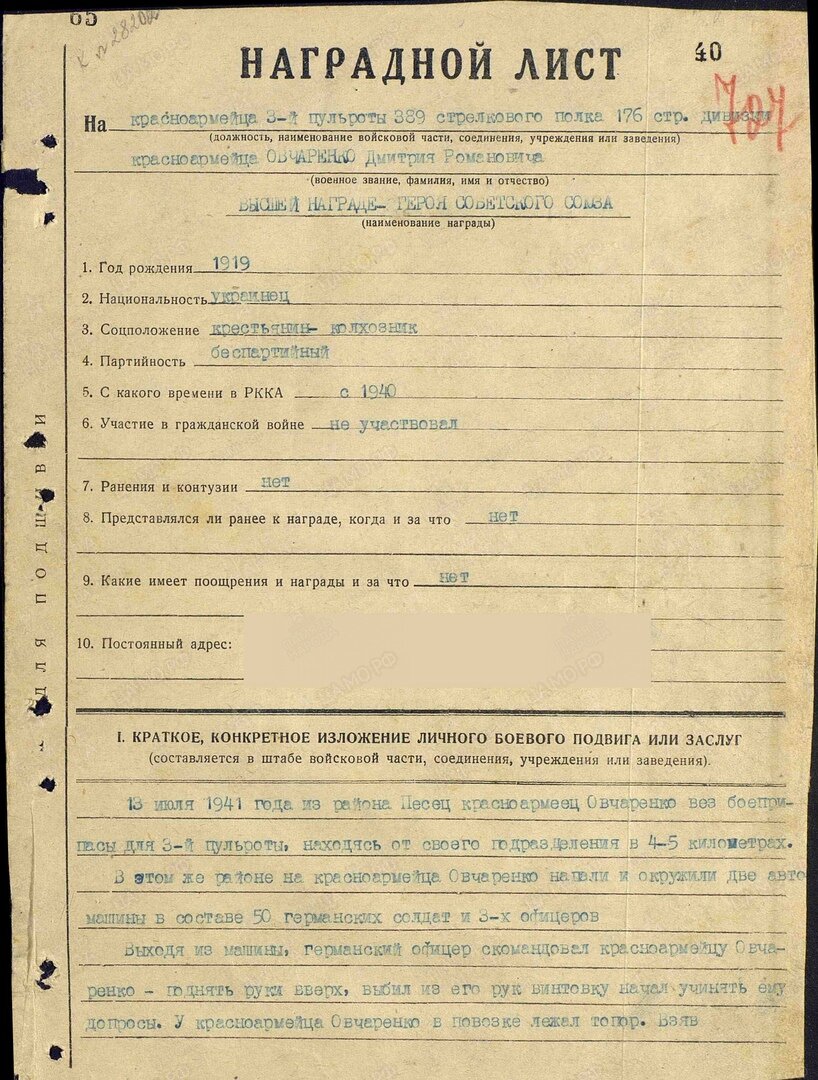 65
К п 28202
НАГРАДНОЙ ЛИСТ
40
707
На красноармейца 3-й пульроты 389 стрелкового полка 176 стр. дивизии
(должность, наименование войсковой части, соединения, учреждения или заведения)
красноармейца ОВЧАРЕНКО Дмитрия Романовича
(военное звание, фамилия, имя и отчество)
ВЫСШЕЙ НАГРАДЕ- ГЕРОЯ СОВЕТСКОГО СОЮЗА
(наименование награды)
1. Год рождения 1919
2. Национальность украинец
3. Соцположение крестьянин- колхозник
4. Партийность беспартийный
5. С какого времени в РККА с 1940
6. Участие в гражданской войне не участвовал
7. Ранения и контузии нет
8. Представлялся ли ранее к награде, когда и за что нет
9. Какие имеет поощрения и награды и за что нет
10. Постоянный адрес:
ДЛЯ ПОДШИВКИ
I. КРАТКОЕ, КОНКРЕТНОЕ ИЗЛОЖЕНИЕ ЛИЧНОГО БОЕВОГО ПОДВИГА ИЛИ ЗАСЛУГ
(составляется в штабе войсковой части, соединения, учреждения или заведения).
13 июля 1941 года из района Песец красноармеец Овчаренко вез боепри-
пасы для 3-й пульроты, находясь от своего подразделения в 4-5 километрах.
В этом же районе на красноармейца Овчаренко напали и окружили две авто
машины в составе 50 германских солдат и 3-х офицеров
Выходя из машины, германский офицер скомандовал красноармейцу Овча-
ренко - поднять руки вверх, выбил из его рук винтовку начал учинять ему
допросы. У красноармейца Овчаренко в повозке лежал топор. Взяв